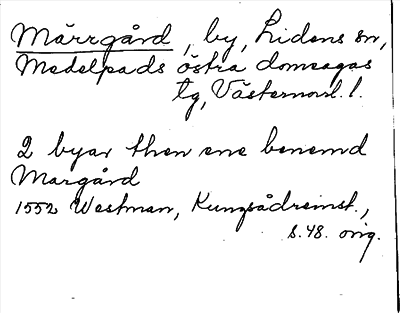 Märrgård, by, Lidens sn,
Medelpads östra domsagas
tg, Västernorrl. l.
2 byar then ene benemd
Margård
1552 Westman, Kungsådreinst.,
s. 48. orig.